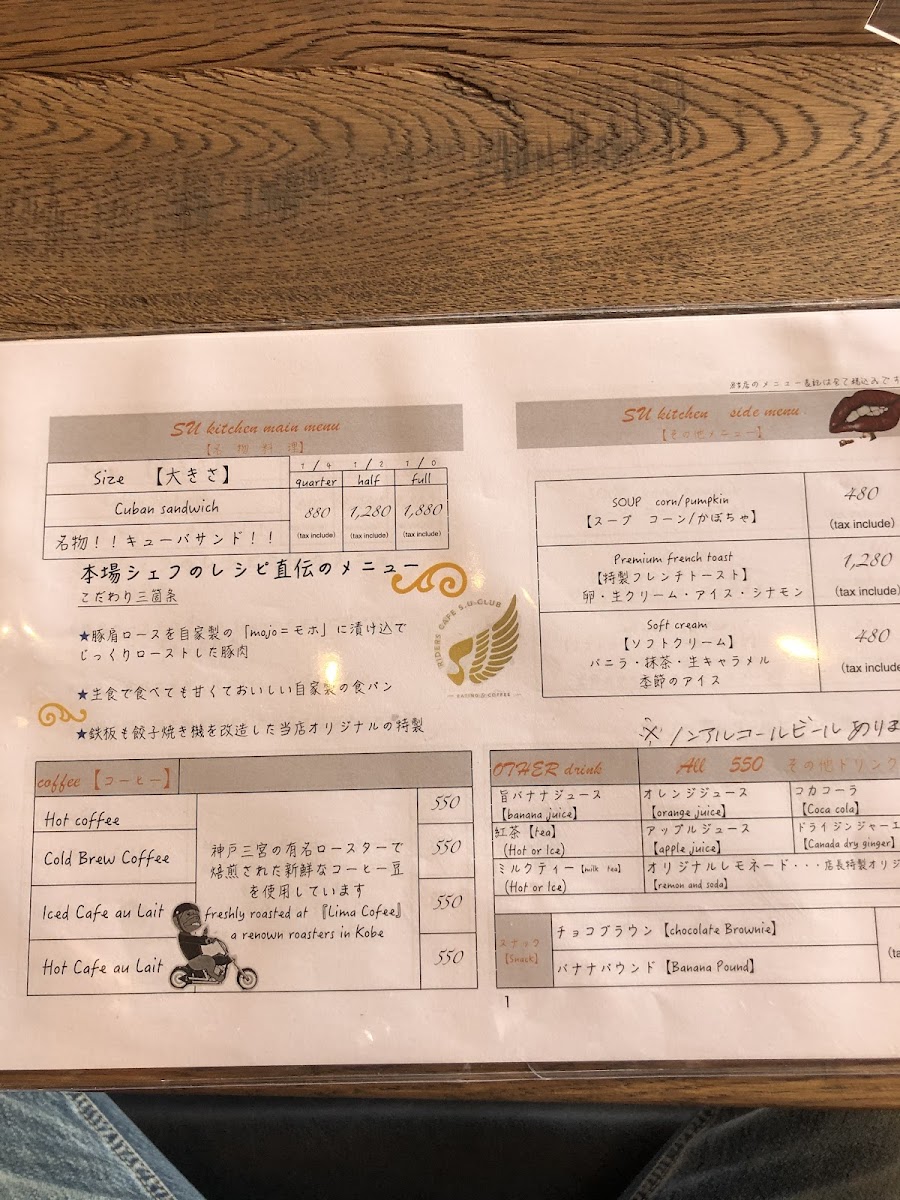 当店のメニュー表記は全て税込みです
SU kitchen main menu
【名物料理】
Size 【大きさ】
1/4 1/2 1/0
quarter half full
Cuban sandwich
880 1,280 1,880
(tax include) (tax include) (tax include)
名物！！キューバサンド！！
本場シェフのレシピ直伝のメニュー
こだわり三箇条
★豚肩ロースを自家製の「mojo＝モホ」に漬け込で
じっくりローストした豚肉
★生食で食べても甘くておいしい自家製の食パン
★鉄板も餃子焼き機を改造した当店オリジナルの特製
RIDERS CAFE S.U.CLUB
EATING & COFFEE
SU kitchen side menu
【その他メニュー】
SOUP corn/pumpkin
【スープ コーン/かぼちゃ】
480
(tax include)
Premium french toast
【特製フレンチトースト】
卵・生クリーム・アイス・シナモン
1,280
(tax include)
Soft cream
【ソフトクリーム】
バニラ・抹茶・生キャラメル
季節のアイス
480
(tax include
※ノンアルコールビールありま
coffee【コーヒー】
Hot coffee 550
Cold Brew Coffee 550
Iced Cafe au Lait 550
Hot Cafe au Lait 550
神戸三宮の有名ロースターで
焙煎された新鮮なコーヒー豆
を使用しています
freshly roasted at 『Lima Cofee』
a renown roasters in Kobe
OTHER drink All 550 その他ドリンク
旨バナナジュース
【banana juice】
オレンジジュース
【orange juice】
コカコーラ
【Coca cola】
紅茶【tea】
(Hot or Ice)
アップルジュース
【apple juice】
ドライジンジャーエ
【Canada dry ginger】
ミルクティー【milk tea】
(Hot or Ice)
オリジナルレモネード・・・店長特製オリジ
【remon and soda】
スナック
【Snack】
チョコブラウン【chocolate Brownie】
バナナパウンド【Banana Pound】
(ta
1